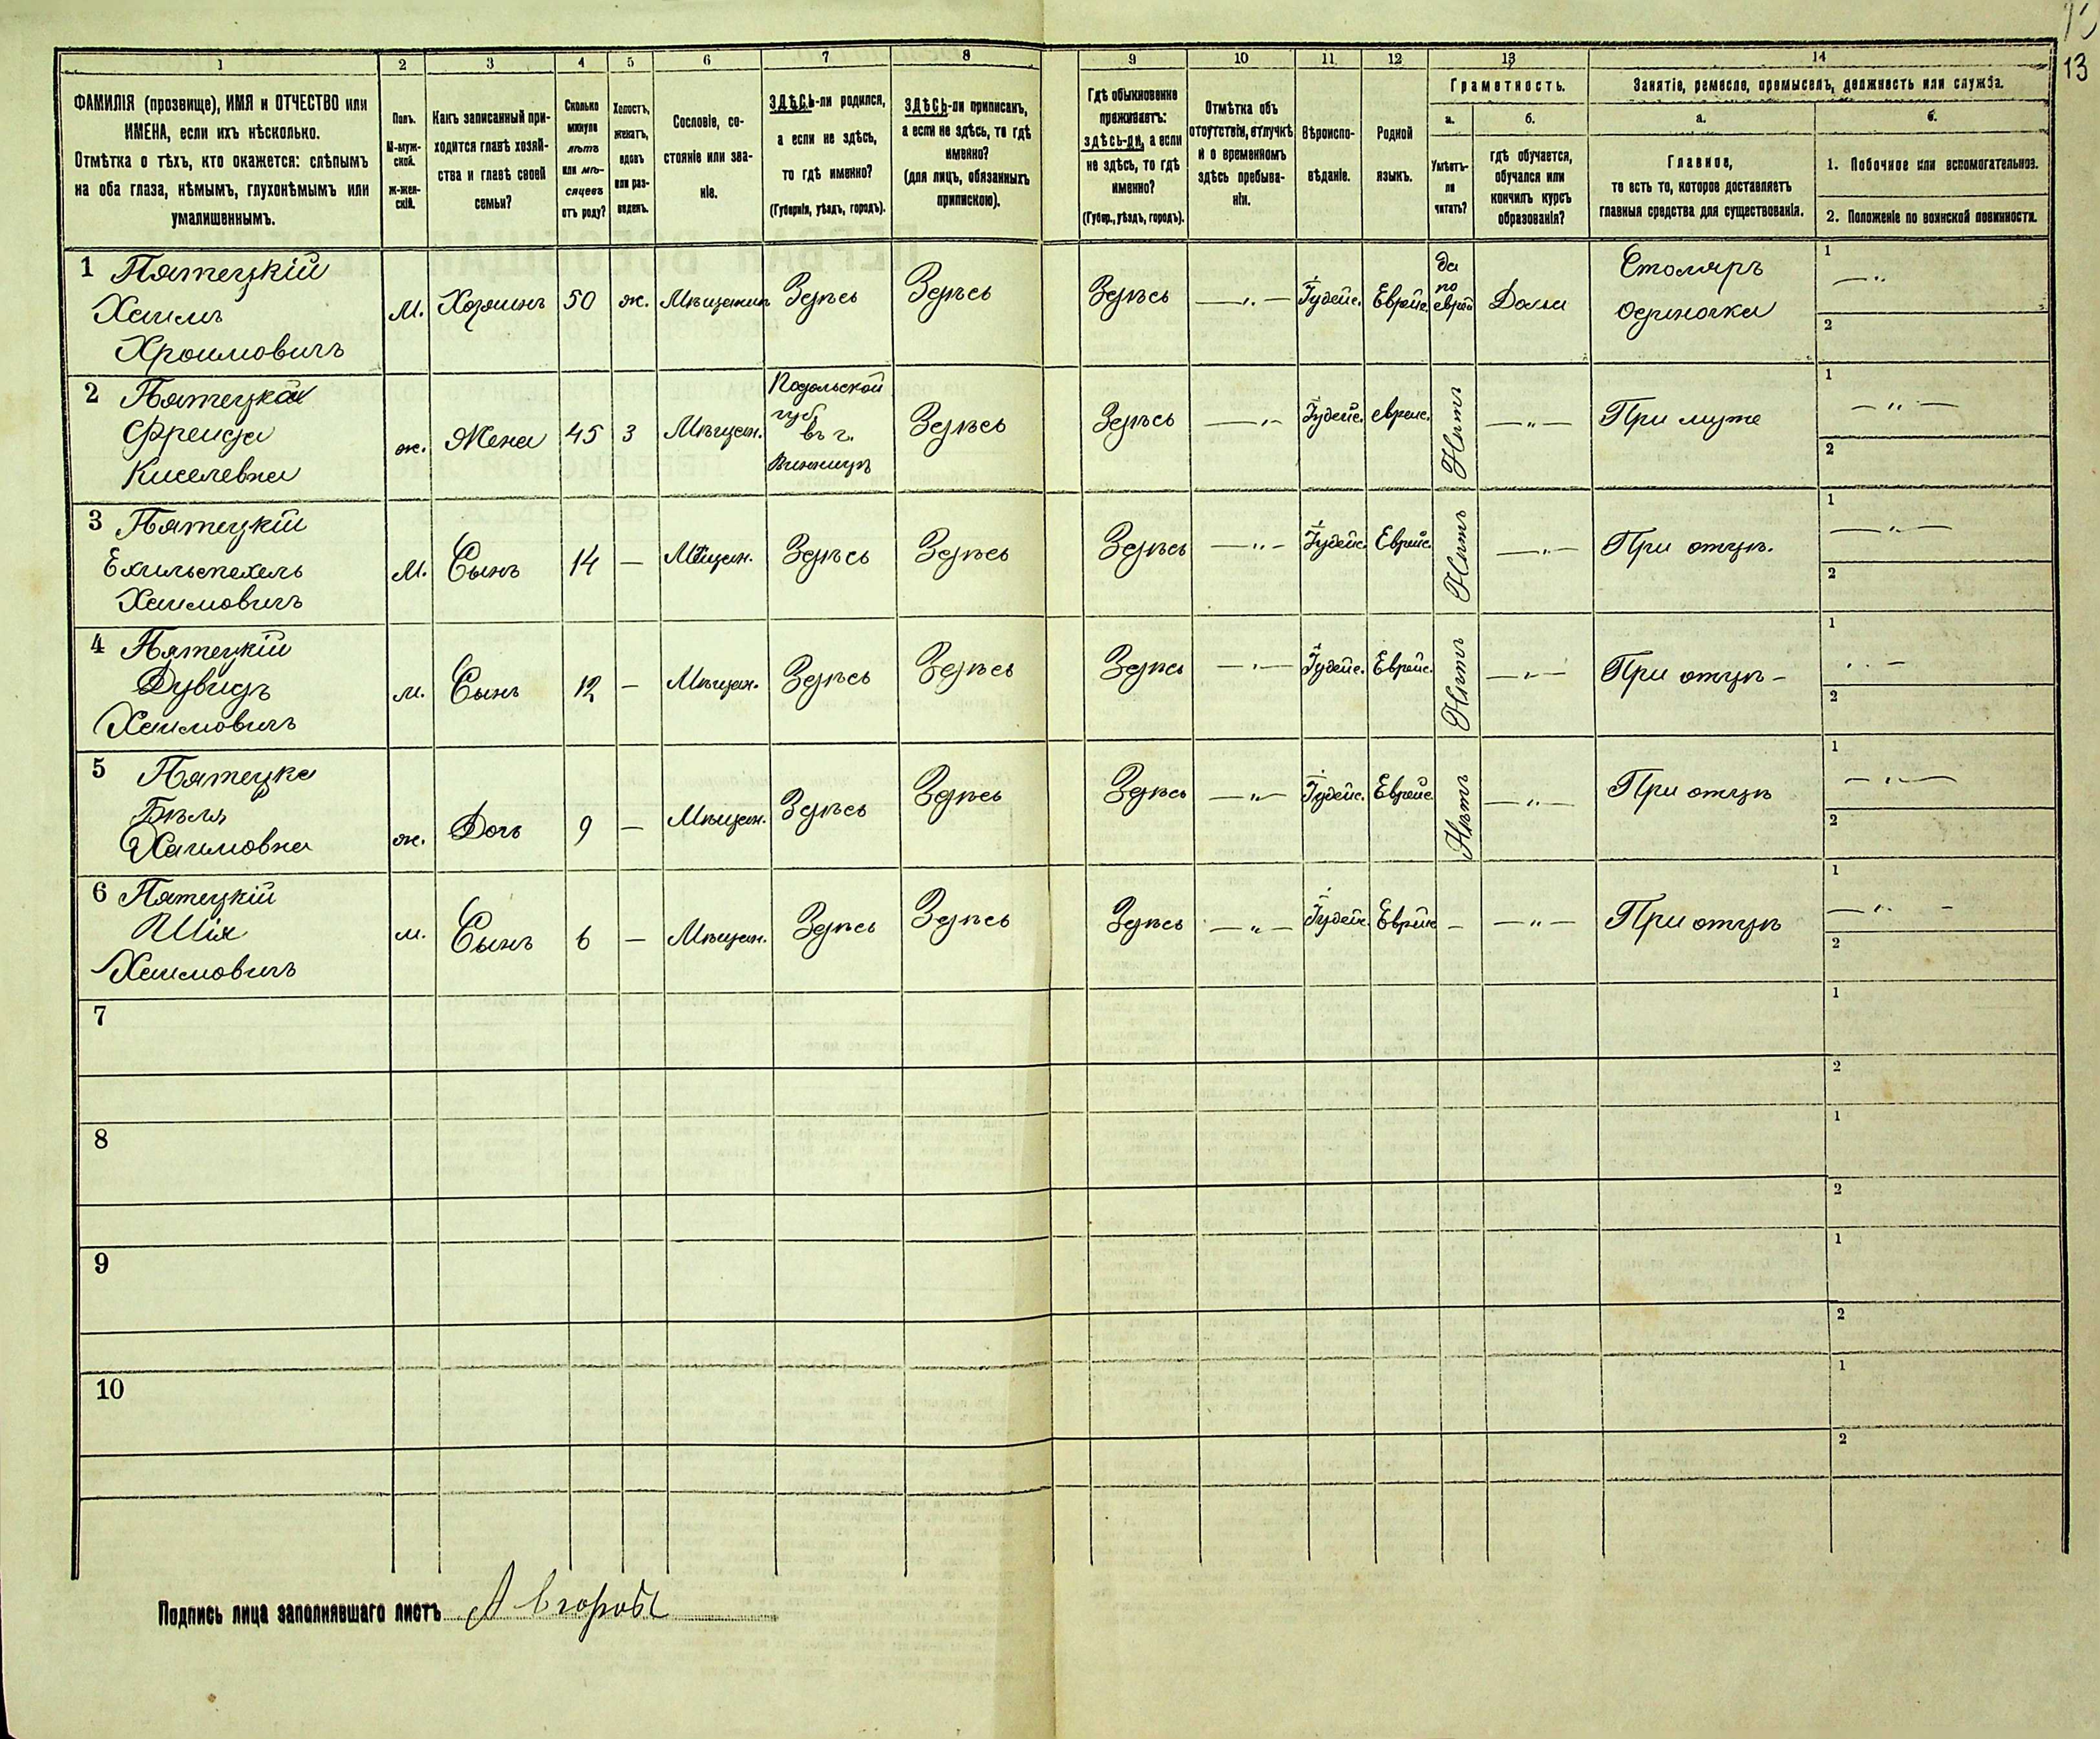 13
1 2 3 4 5 6 7 8 9 10 11 12 13 14
ФАМИЛІЯ (прозвище), ИМЯ и ОТЧЕСТВО или
ИМЕНА, если ихъ нѣсколько.
Отмѣтка о тѣхъ, кто окажется: слѣпымъ
на оба глаза, нѣмымъ, глухонѣмымъ или
умалишеннымъ.
Полъ.
М-муж-
ской.
ж-жен-
скій.
Какъ записанный при-
ходится главѣ хозяй-
ства и главѣ своей
семьи?
Сколько
минуло
лѣтъ
или мѣ-
сяцевъ
отъ роду?
Холостъ,
женатъ,
вдовъ
или раз-
веденъ.
Сословіе, со-
стояніе или зва-
ніе.
ЗДѢСЬ-ли родился,
а если не здѣсь,
то гдѣ именно?
(Губернія, уѣздъ, городъ).
ЗДѢСЬ-ли приписанъ,
а если не здѣсь, то гдѣ
именно?
(для лицъ, обязанныхъ
припискою).
Гдѣ обыкновенно
проживаетъ:
здѣсь-ли, а если
не здѣсь, то гдѣ
именно?
(Губер., уѣздъ, городъ).
Отмѣтка объ
отсутствіи, отлучкѣ
и о временномъ
здѣсь пребыва-
ніи.
Вѣроиспо-
вѣданіе.
Родной
языкъ.
Грамотность.
а.
Умѣетъ-
ли
читать?
б.
гдѣ обучается,
обучался или
кончилъ курсъ
образованія?
Занятіе, ремесло, промыселъ, должность или служба.
а.
Главное,
то есть то, которое доставляетъ
главныя средства для существованія.
б.
1. Побочное или вспомогательное.
2. Положеніе по воинской повинности.
1 Пятецкій
Хаимъ
Хроимовичъ
М. Хозяинъ 50 ж. Мѣщанин Здѣсь Здѣсь Здѣсь — „ — Іудейс. Еврейс. да
по
еврей Дома Столяръ
одиночка
1 — „
2
2 Пятецкая
Фрейда
Киселевна
ж. Жена 45 3 Мѣщан. Подольской
губ.
въ г.
Винницѣ Здѣсь Здѣсь — „ — Іудейс. еврейс. Нѣтъ — „ — При мужѣ
1 — „ —
2
3 Пятецкій
Ехильспехель
Хаимовичъ
М. Сынъ 14 — Мѣщан. Здѣсь Здѣсь Здѣсь — „ — Іудейс. Еврейс. Нѣтъ — „ — При отцѣ.
1 — „ —
2
4 Пятецкій
Дувидъ
Хаимовичъ
м. Сынъ 12 — Мѣщан. Здѣсь Здѣсь Здѣсь — „ — Іудейс. Еврейс. Нѣтъ — „ — При отцѣ —
1 „ —
2
5 Пятецка
Бѣля
Хаимовна
ж. Дочь 9 — Мѣщан. Здѣсь Здѣсь Здѣсь — „ — Іудейс. Еврейс. Нѣтъ — „ — При отцѣ
1 — „ —
2
6 Пятецкій
Шія
Хаимовичъ
м. Сынъ 6 — Мѣщан. Здѣсь Здѣсь Здѣсь — „ — Іудейс. Еврейс — — „ — При отцѣ
1 — „ —
2
7
1
2
8
1
2
9
1
2
10
1
2
Подпись лица заполнявшаго листъ